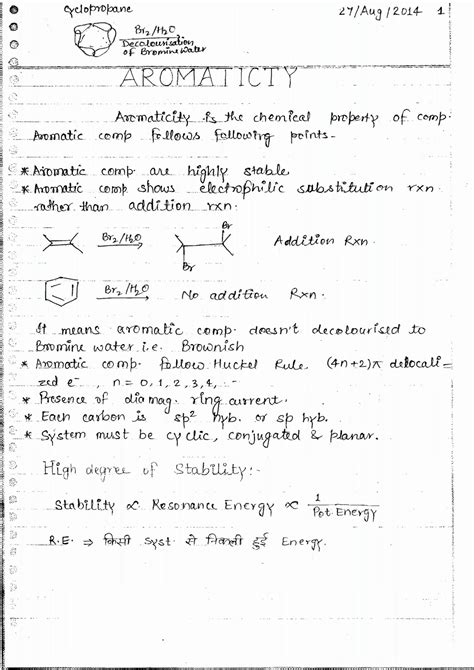 Cyclopropane 27/Aug/2014 1
Br2/H2O
Decolourisation
of Bromine water
AROMATICTY
Aromaticity is the chemical property of comp.
Aromatic comp follows following points-
* Aromatic comp are highly stable
* Aromatic comp shows electrophilic substitution rxn
rather than addition rxn.
Br2/H2O Br Br Addition Rxn.
Br2/H2O No addition Rxn.
It means aromatic comp. doesn't decolourised to
Bromine water i.e. Brownish
* Aromatic comp. follow Huckel Rule (4n+2)π delocali=
zed e-, n = 0, 1, 2, 3, 4, --
* Presence of dia mag. ring current.
* Each carbon is sp2 hyb. or sp hyb.
* System must be cyclic, conjugated & planar.
High degree of Stability:-
Stability ∝ Resonance Energy ∝ 1/Pot. Energy
R.E. ⇒ किसी syst. से निकली हुई Energy.